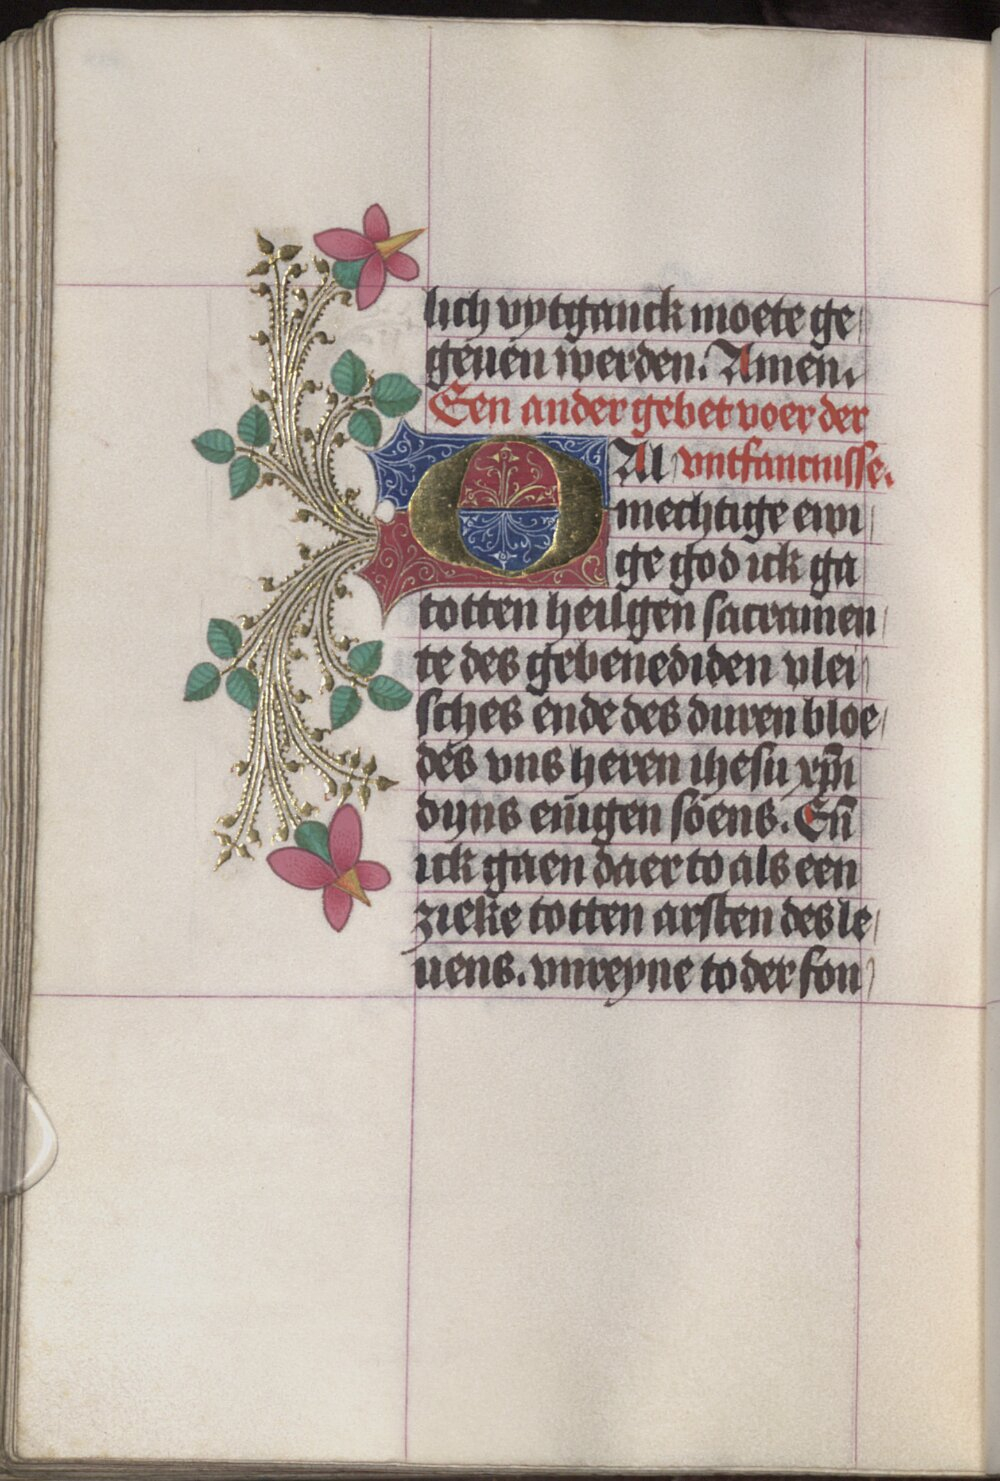 lich vytganck moete ge
geuen werden. Amen.
Een ander gebet voer der
O Al vntfancnisse.
mechtige ewi
ge god ick ga
totten heilgen sacramen
te des gebenediden vlei
sches ende des duren bloe
des vns heren ihesu xp̄i
dijns enigen soens. En̄
ick gaen daer to als een
zieke totten arsten des le
uens. vnreyne to der fon